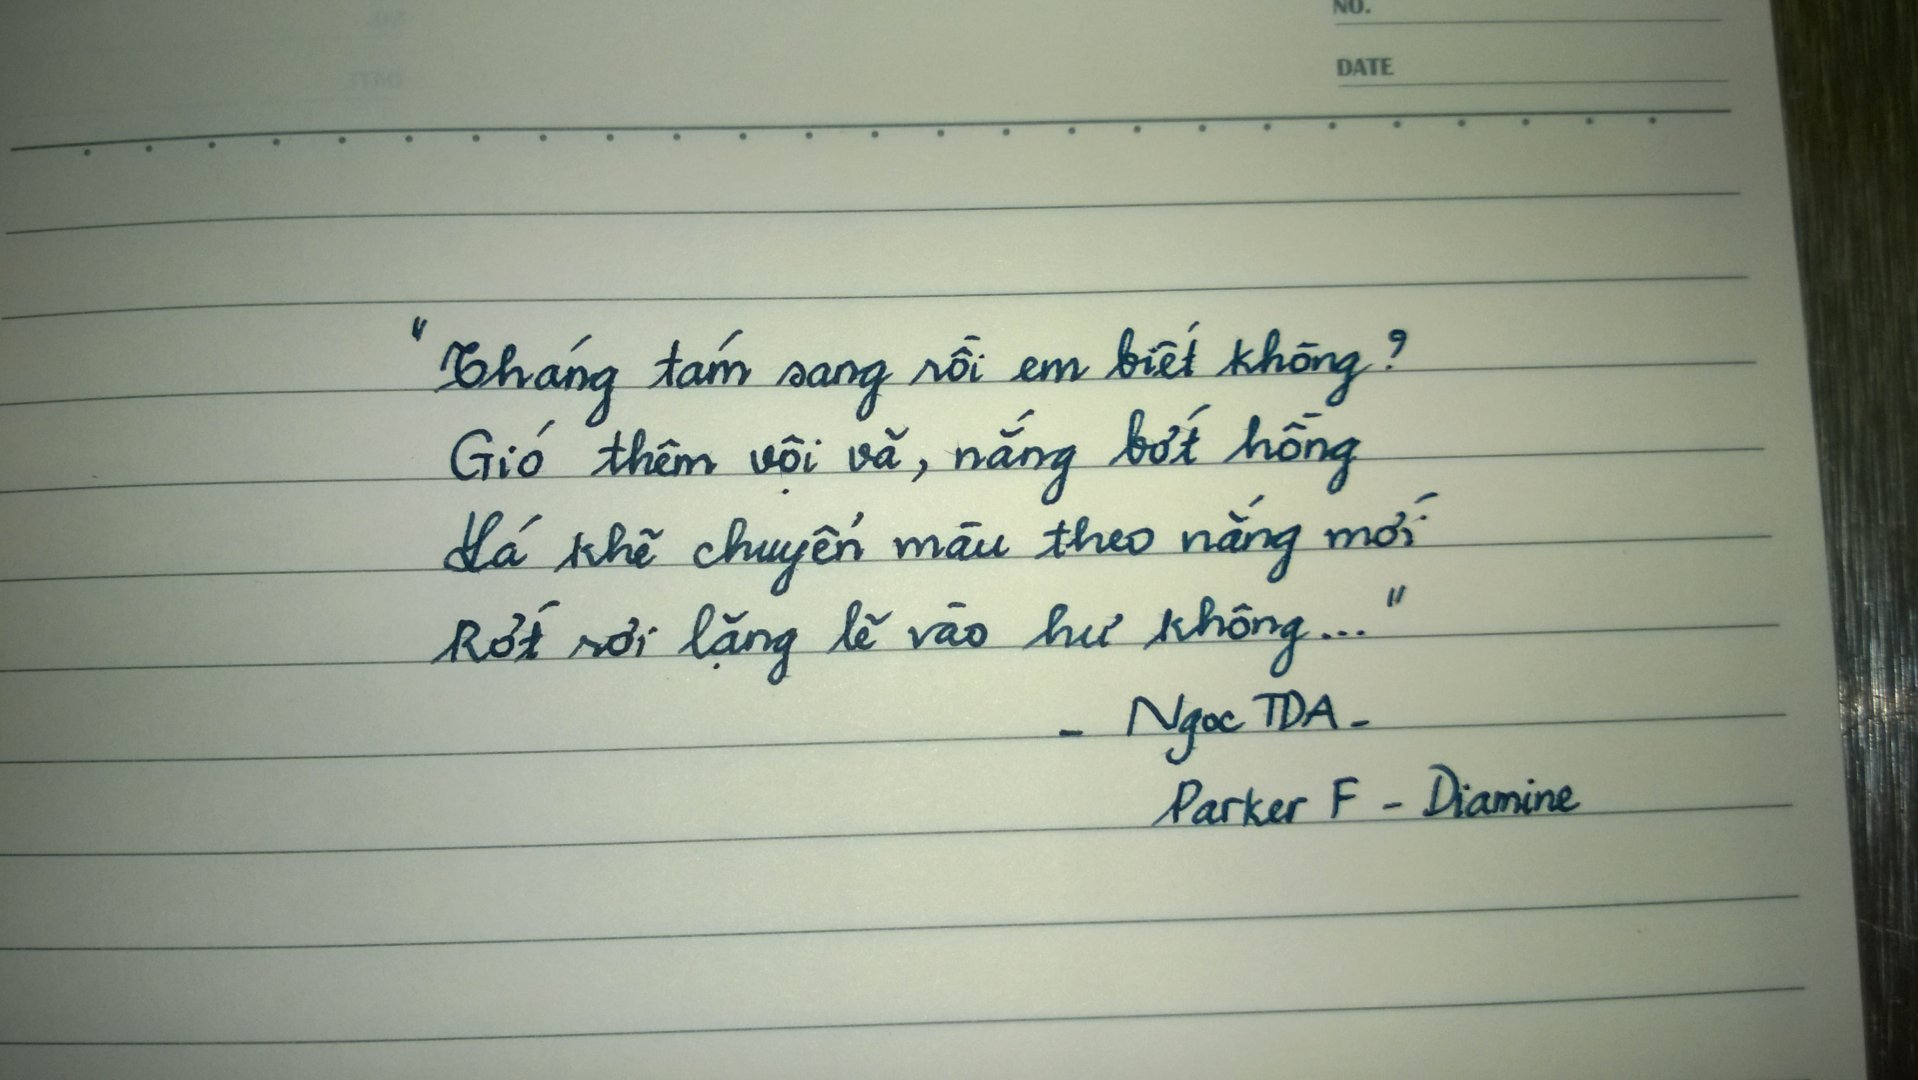 NO.
DATE
"Tháng tám sang rồi em biết không?
Gió thêm vội vã, nắng bớt hồng
Lá khẽ chuyển màu theo nắng mới
Rớt rơi lặng lẽ vào hư không..."
- Ngoc TDA -
Parker F - Diamine